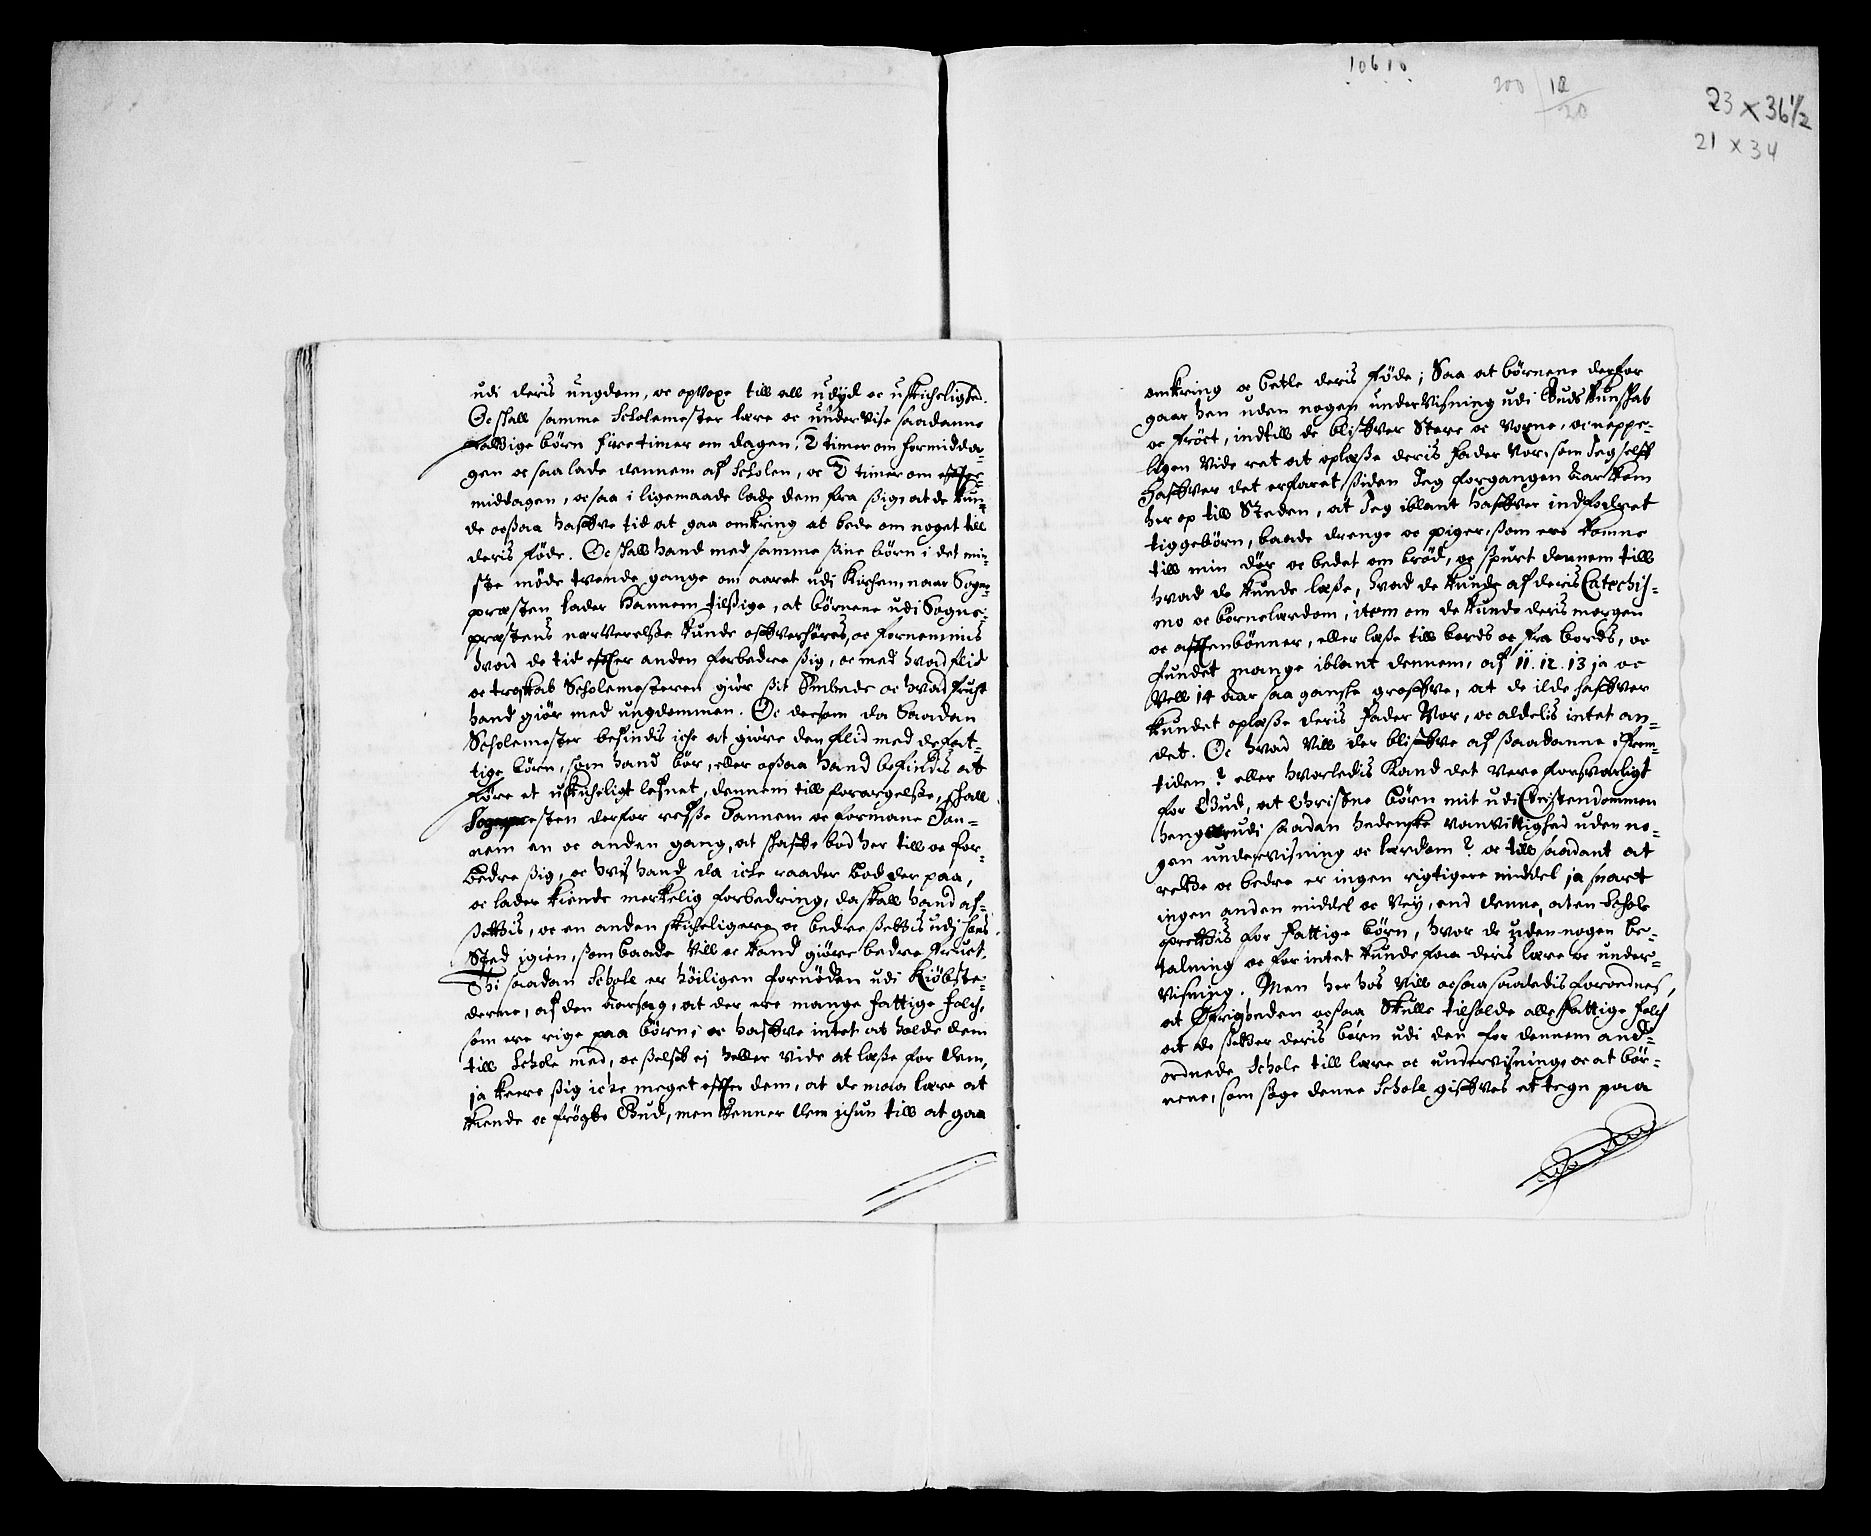 10610
200 | 12
20
23 x 36 1/2
21 x 34
udi deris ungdom, oc opvoxe till all udyd oc uskichelighed.
Oc skall samme Scholemester lære oc undervise saadanne
fattige børn fire timer om dagen, 2 timer om formidda-
gen oc saa lade dennem af Scholen, oc 2 timer om effter-
middagen, oc saa i ligemaade lade dem fra sig, at de kun-
de ocsaa haffve tid at gaa omkring at bede om noget till
deris føde. Oc skall hand med samme sine børn i det min-
ste møde tvende gange om aaret udi Kirchen, naar Sogne-
præsten lader hannem tilsige, at børnene udi Sogne-
præstens nærverelse kunde offverhøres, oc fornemmis
hvad de tid effter anden forbedre sig, oc med hvad flid
oc troskab Scholemesteren giør sit Embede oc hvad frucht
hand giør med ungdommen. Oc dersom da Saadan
Scholemester befindis iche at giøre den flid med de fat-
tige børn, som hand bør, eller ocsaa hand befindis at
føre et uskicheligt lefnet, dennem till forargelse, skall
Sognepresten derfor reffse Hannem oc formane Han-
nem en oc anden gang, at skaffe bod her till oc for-
bedre sig, oc hvis hand da iche raader bod der paa,
oc lader kiende merkelig forbedring, da skall hand af-
settis, oc en anden skicheligere oc bedre settis udi hans
Sted igien, som baade vill oc kand giøre bedre fruct.
Thi saadan Schole er høiligen fornøden udi Kiøbste-
derne, af den aarsag, at der ere mange fattige folch,
som ere rige paa børn, oc haffve intet at holde dem
till Schole med, oc selff ej heller vide at læse for dem,
ja keere sig iche meget effter dem, at de maa lære at
kiende oc frøgte Gud, men venner dem ichun till at gaa
omkring oc betle deris føde; Saa at børnene derfor
gaar hen uden nogen undervisning udi Guds kundskab
oc frøct, indtill de bliffver Store oc voxne, oc neppe-
ligen vide ret at oplæse deris Fader Vor, som Jeg selff
haffver det erfaret, siden Jeg forgangen aar kom
her op till Steden, at Jeg iblant haffver indfodret
tiggebørn, baade drenge oc piger, som ere komne
till min dør oc bedet om brød, oc spurt dennem till
hvad de kunde læse, hvad de kunde af deris Catechis-
mo oc børnelærdom, item om de kunde deris morgen
oc afftenbønner, eller læse till bords oc fra bords, oc
fundet mange iblant dennem, af 11. 12. 13 ja oc
vell 14 aar saa ganske groffve, at de ilde haffver
kundet oplæse deris Fader Vor, oc aldelis intet an-
det. Oc hvad vill der bliffve af saadanne i frem-
tiden? eller hvorledis kand det vere forsvarligt
for Gud, at Christne børn mit udi Christendommen
henge udi saadan hedenske vanvittighed uden no-
gen undervisning oc lærdom? oc till saadant at
rette oc bedre er ingen rigtigere middel ja snart
ingen anden middel oc vey, end denne, at en Schole
oprettis for fattige børn, hvor de uden nogen be-
talning oc for intet kunde faa deris lære oc under-
visning. Men her hos vill ocsaa saaledis forordnes,
at Øfrigheden ocsaa Skulle tilholde alle fattige folch
at de setter deris børn udi den for dennem and-
ordnede Schole till lære oc undervisning, oc at bør-
nene, som søge denne Schole giffves et tegn paa